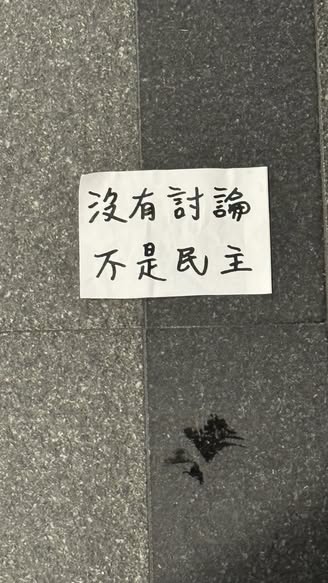 沒有討論
不是民主